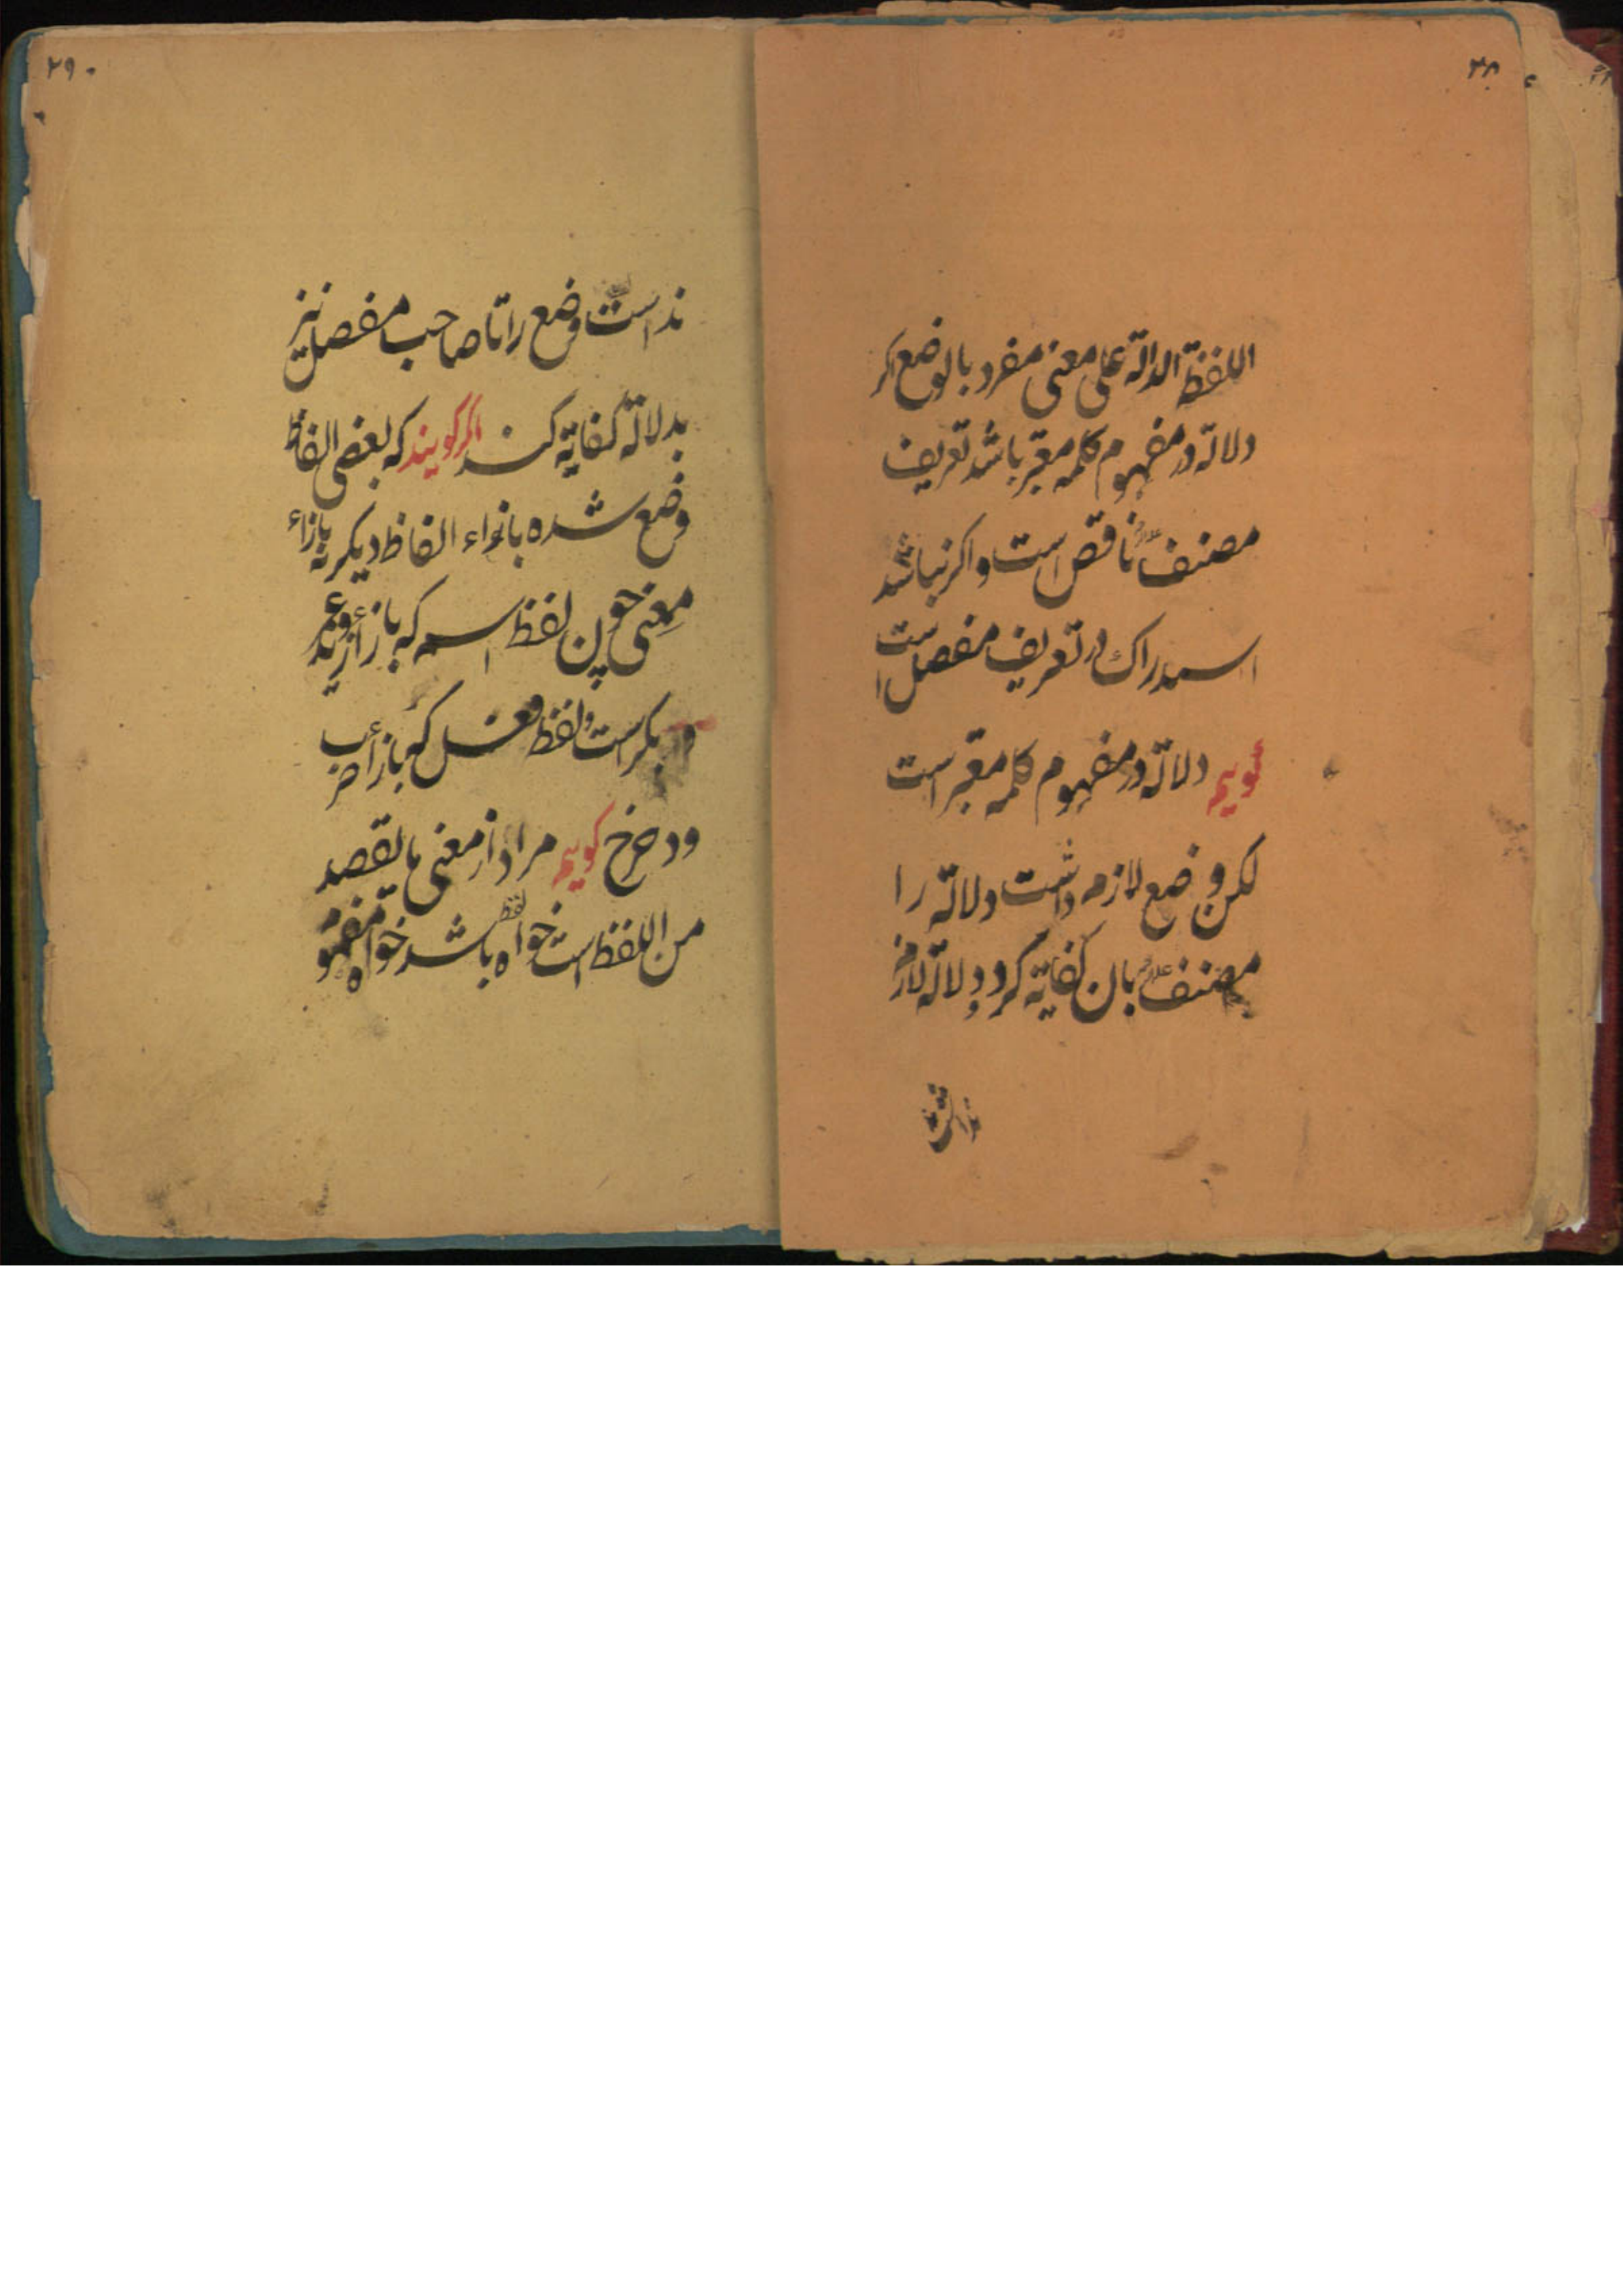 ۳۸
اللفظة الدالة علی معنی مفرد بالوضع اکر
دلالة در مفهوم کلمه معتبر باشد تعریف
مصنف ناقص است و اکر نباشد
استدراک در تعریف مفصل است
کوییم دلالة در مفهوم کلمه معتبر است
لکن وضع لازم داشت دلالة را
مصنف بان کفایة کرد و دلالة لازم
نداشت
۲۹۰
نداست وضع را تا صاحب مفصل نیز
بدلالة کفایة کند اکر کویند که بعضی الفاظ
وضع شده بازاء الفاظ دیکر نه بازاء
معنی چون لفظ اسم که بازاء زید و عمرو
و بکر است و لفظ فعل که بازاء ضرب
ودحرج کوییم مراد از معنی ما یقصد
من اللفظ است خواه لفظ باشد خواه مفهوم